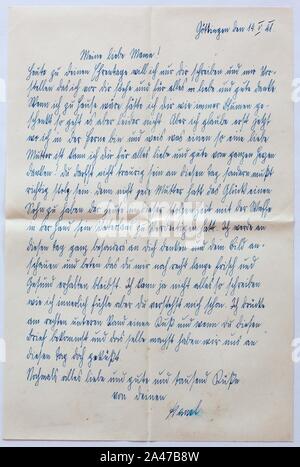 Göttingen den 14.V.41
Meine liebe Mama!
Heute zu deinem Ehrentage will ich nur dir schreiben und mir vor-
stellen daß ich vor dir stehe und für alles liebe und gute danke
Wenn ich zu Hause wäre hätte ich dir wie immer Blumen ge-
schenkt so geht es aber leider nicht. Aber ich glaube erst jetzt
wo ich in der Ferne bin und weiß was einem so eine liebe
Mutter ist kann ich dir für alles liebe und gute von ganzem Herzen
danken. du darfst nicht traurig sein an diesem tag sondern mußt
richtig stolz sein denn nicht jede Mutter hat das Glück einen
Sohn zu haben der in der mit der Waffe
in der Hand sein Vaterland zu hat. Ich werde an
diesem tag ganz besonders an dich denken und dein Bild an-
schauen und beten daß du mir noch recht lange frisch und
Gesund erhalten bleibst. Ich kann ja nicht alles so schreiben
wie ich innerlich fühle aber du verstehst mich schon. Ich drücke
am rechten unteren Rand einen Kuß und wenn du diesen
Brief bekommst und das selbe machst haben wir uns an
diesem tag doch geküßt.
Nochmals alles liebe und gute und tausend Küße
von deinem
alamy